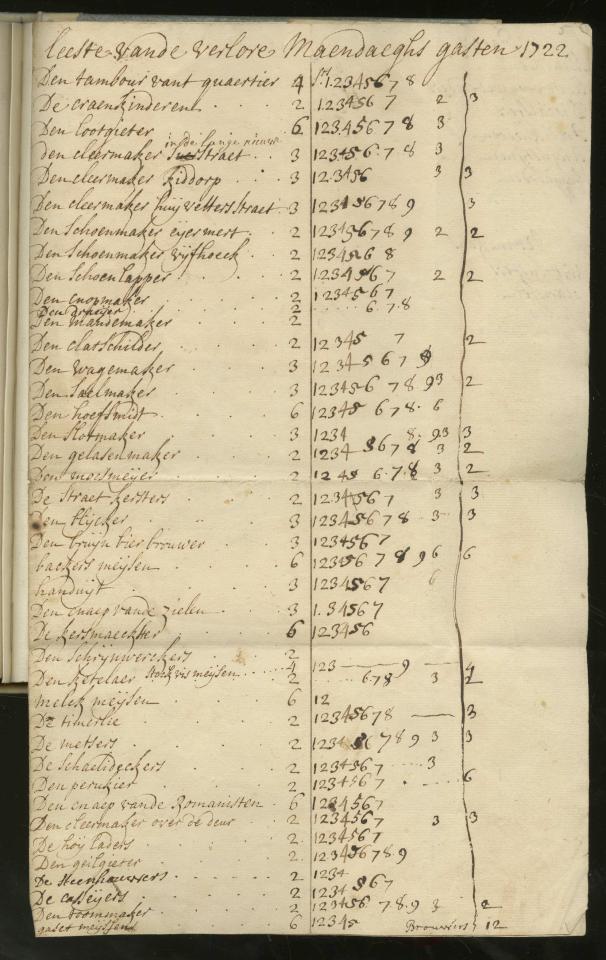 leeste vande verlore Maendaeghs gasten 1722
Den tambour vant quaertier 4 12345678
De craenkinderen 2 1234567 2 3
Den lootgieter 6 12345678 3
in de lange nieuw
den cleermaker straet 3 12345678 3
Den cleermaker Riddorp 3 123456 3 3
Den cleermaker huijvettersstraet 3 123456789 3
Den Schoenmaker eijermert 2 123456789 2 2
Den Schoenmaker vijfhoeck 2 1234568
Den Schoenlapper 2 1234567 2 2
Den cnopmaker 2 1234567
Den draijer 2 6.7.8
Den mandemaker 2
Den clatschilder 2 12345 7 2
Den wagemaker 3 12345678
Den Saelmaker 3 123456789 3 2
Den hoefsmidt 6 12345 678 6
Den Slotmaker 3 1234 8 9 3 3
Den gelasenmaker 2 1234 5678 3 2
Den moesmeijer 2 1245 6.7.8 3 2
De Straet kersters 2 1234567 3 3
Den blijcker 3 12345678 3 3
Den bruijn bierbrouwer 3 1234567
backers meijsen 6 123456789 6 6
handuijt 3 1234567 6
Den cnaep vande zielen 3 1.34567
De kersmaeckster 6 123456
Den Schrijnwerckers 2
Stockvismeijsen 4 123 9 4
Den ketelaer 2 678 3 2
melck meijsen 6 12
De timerlie 2 12345678 3
De metsers 2 123456789 3 3
De Schaelideckers 2 1234567 3
Den perukier 2 1234567 6
Den cnaep vande Romanisten 6 1234567
Den cleermaker over de deur 2 1234567 3 3
De hoij laders 2 1234567
Den geilgieter 2 123456789
De Steenhouwers 2 1234
De casseijers 2 1234567
Den boommaker 2 123456 789 3 2
gaset meijssen 6 12345 Brouwers 12